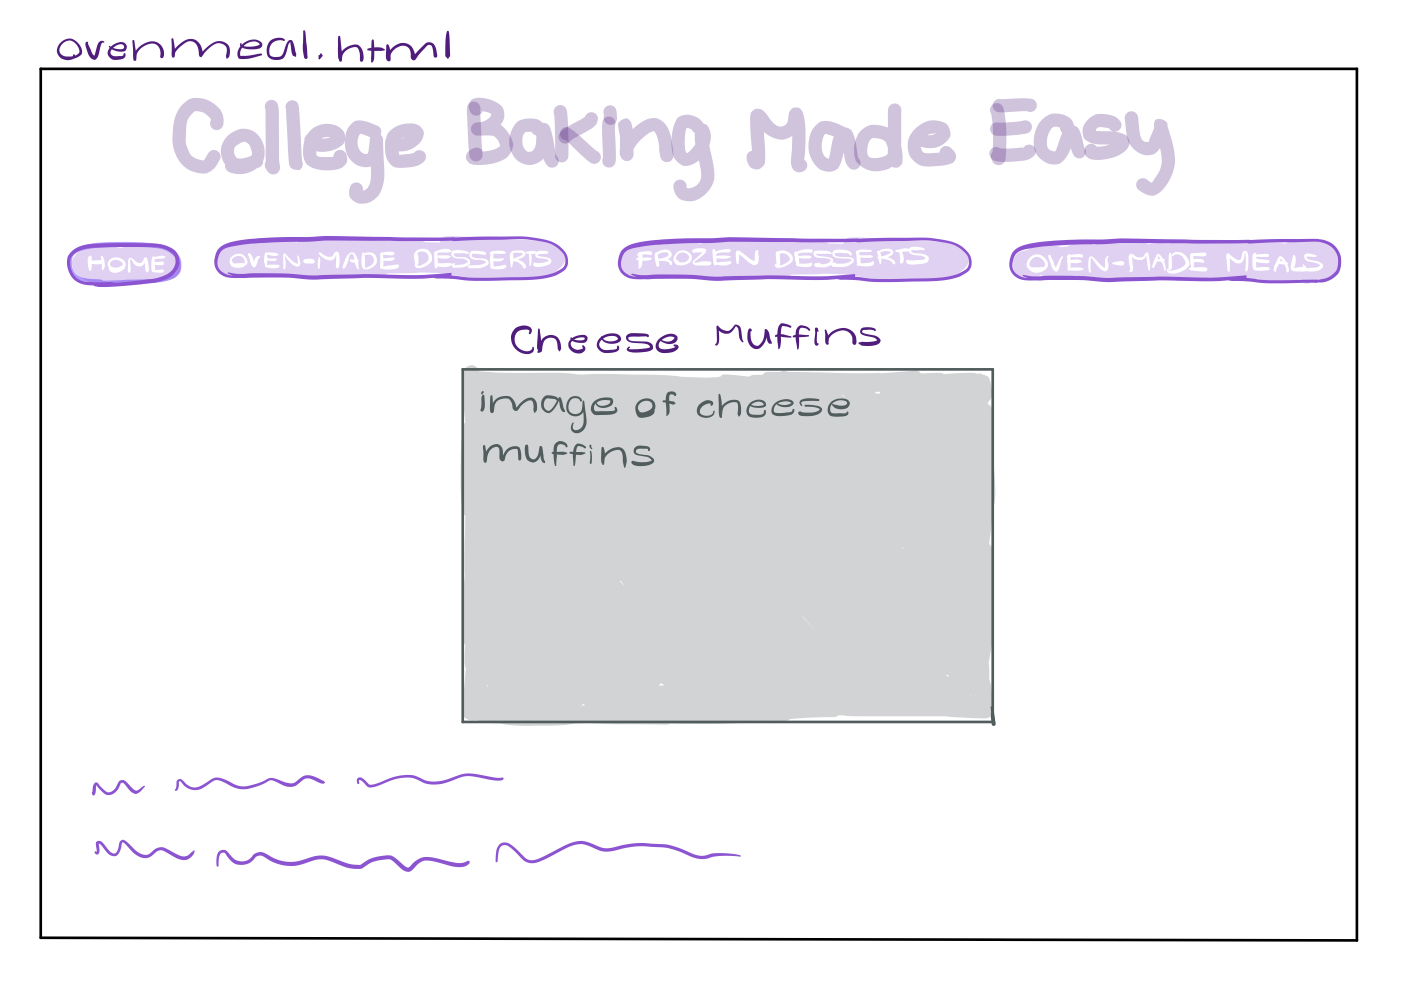 ovenmeal.html
College Baking Made Easy
HOME OVEN-MADE DESSERTS FROZEN DESSERTS OVEN-MADE MEALS
Cheese Muffins
image of cheese
muffins